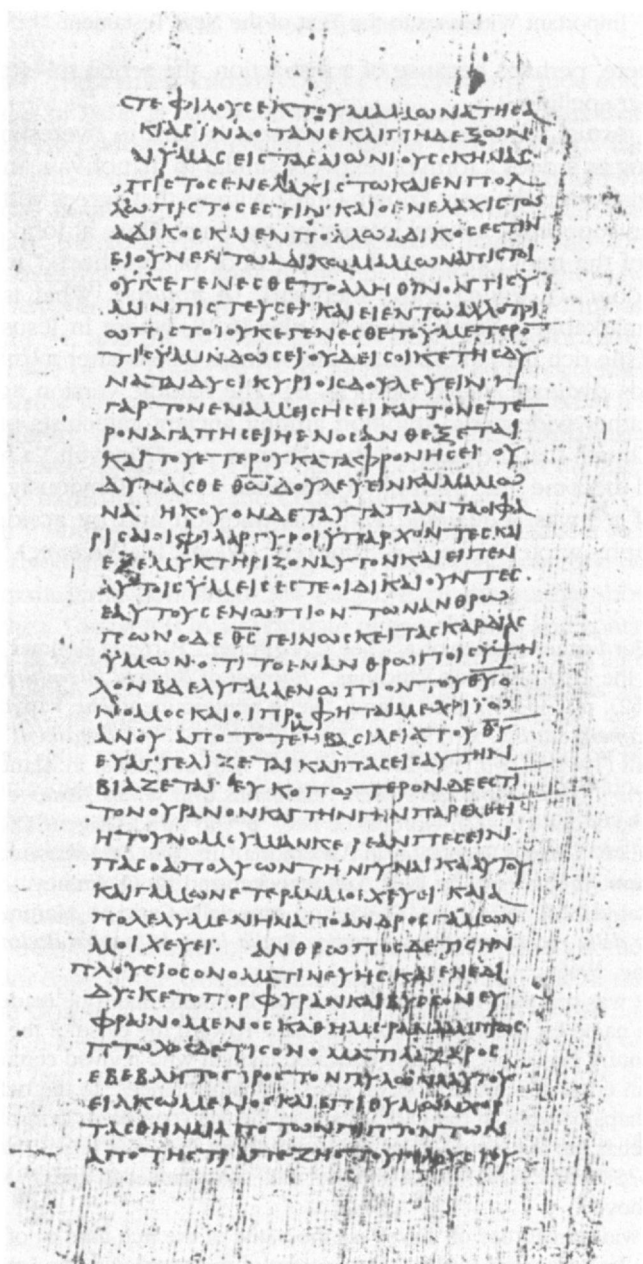 ϹΤΕΦΙΛΟΥϹΕΚΤΟΥΜΑΜΩΝΑΤΗϹΑ
ΚΙΑϹΙΝΑΟΤΑΝΕΚΛΙΠΗΔΕΞΩΝΤ
ΑΙΥΜΑϹΕΙϹΤΑϹΑΙΩΝΙΟΥϹϹΚΗΝΑϹ
ΠΙϹΤΟϹΕΝΕΛΑΧΙϹΤΩΚΑΙΕΝΠΟΛ
ΛΩΠΙϹΤΟϹΕϹΤΙΝΚΑΙΟΕΝΕΛΑΧΙϹΤΩ
ΑΔΙΚΟϹΚΑΙΕΝΠΟΛΛΩΑΔΙΚΟϹΕϹΤΙΝ
ΕΙΟΥΝΕΝΤΩΑΔΙΚΩΜΑΜΩΝΑΠΙϹΤΟΙ
ΟΥΚΕΓΕΝΕϹΘΕΤΟΑΛΗΘΙΝΟΝΤΙϹΥ
ΜΙΝΠΙϹΤΕΥϹΕΙΚΑΙΕΙΕΝΤΩΑΛΛΟΤΡΙ
ΩΠΙϹΤΟΙΟΥΚΕΓΕΝΕϹΘΕΤΟΥΜΕΤΕΡΟ
ΤΙϹΥΜΙΝΔΩϹΕΙΟΥΔΕΙϹΟΙΚΕΤΗϹΔΥ
ΝΑΤΑΙΔΥϹΙΚΥΡΙΟΙϹΔΟΥΛΕΥΕΙΝΗ
ΓΑΡΤΟΝΕΝΑΜΕΙϹΗϹΕΙΚΑΙΤΟΝΕΤΕ
ΡΟΝΑΓΑΠΗϹΕΙΗΕΝΟϹΑΝΘΕΞΕΤΑΙ
ΚΑΙΤΟΥΕΤΕΡΟΥΚΑΤΑΦΡΟΝΗϹΕΙΟΥ
ΔΥΝΑϹΘΕΘΩΔΟΥΛΕΥΕΙΝΚΑΙΜΑΜΩ
ΝΑΗΚΟΥΟΝΔΕΤΑΥΤΑΠΑΝΤΑΟΙΦΑ
ΡΙϹΑΙΟΙΦΙΛΑΡΓΥΡΟΙΫΠΑΡΧΟΝΤΕϹΚΑΙ
ΕΞΕΜΥΚΤΗΡΙΖΟΝΑΥΤΟΝΚΑΙΕΙΠΕΝ
ΑΥΤΟΙϹΫΜΕΙϹΕϹΤΕΟΙΔΙΚΑΙΟΥΝΤΕϹ
ΕΑΥΤΟΥϹΕΝΩΠΙΟΝΤΩΝΑΝΘΡΩ
ΠΩΝΟΔΕΘ̅Ϲ̅ΓΕΙΝΩϹΚΕΙΤΑϹΚΑΡΔΙΑϹ
ΫΜΩΝΟΤΙΤΟΕΝΑΝΘΡΩΠΟΙϹΥΨΗ
ΛΟΝΒΔΕΛΥΓΜΑΕΝΩΠΙΟΝΤΟΥΘ̅Υ̅
ΝΟΜΟϹΚΑΙΟΙΠΡΟΦΗΤΑΙΜΕΧΡΙΙΩ
ΑΝΟΥΑΠΟΤΟΤΕΗΒΑϹΙΛΕΙΑΤΟΥΘ̅Υ̅
ΕΥΑΓΓΕΛΙΖΕΤΑΙΚΑΙΠΑϹΕΙϹΑΥΤΗΝ
ΒΙΑΖΕΤΑΙΕΥΚΟΠΩΤΕΡΟΝΔΕΕϹΤΙ
ΤΟΝΟΥΡΑΝΟΝΚΑΙΤΗΝΓΗΝΠΑΡΕΛΘΕΙ
ΗΤΟΥΝΟΜΟΥΜΙΑΝΚΕΡΕΑΝΠΕϹΕΙΝ
ΠΑϹΟΑΠΟΛΥΩΝΤΗΝΓΥΝΑΙΚΑΑΥΤΟΥ
ΚΑΙΓΑΜΩΝΕΤΕΡΑΝΜΟΙΧΕΥΕΙΚΑΙΟ
ΑΠΟΛΕΛΥΜΕΝΗΝΑΠΟΑΝΔΡΟϹΓΑΜΩΝ
ΜΟΙΧΕΥΕΙΑΝΘΡΩΠΟϹΔΕΤΙϹΗΝ
ΠΛΟΥϹΙΟϹΟΝΟΜΑΤΙΝΕΥΗϹΚΑΙΕΝΕΔΙ
ΔΥϹΚΕΤΟΠΟΡΦΥΡΑΝΚΑΙΒΥϹϹΟΝΕΥ
ΦΡΑΙΝΟΜΕΝΟϹΚΑΘΗΜΕΡΑΝΛΑΜΠΡΩϹ
ΠΤΩΧΟϹΔΕΤΙϹΟΝΟΜΑΤΙΛΑΖΑΡΟϹ
ΕΒΕΒΛΗΤΟΠΡΟϹΤΟΝΠΥΛΩΝΑΑΥΤΟΥ
ΕΙΛΚΩΜΕΝΟϹΚΑΙΕΠΙΘΥΜΩΝΧΟΡ
ΤΑϹΘΗΝΑΙΑΠΟΤΩΝΠΙΠΤΟΝΤΩΝ
ΑΠΟΤΗϹΤΡΑΠΕΖΗϹΤΟΥΠΛΟΥϹΙΟΥ